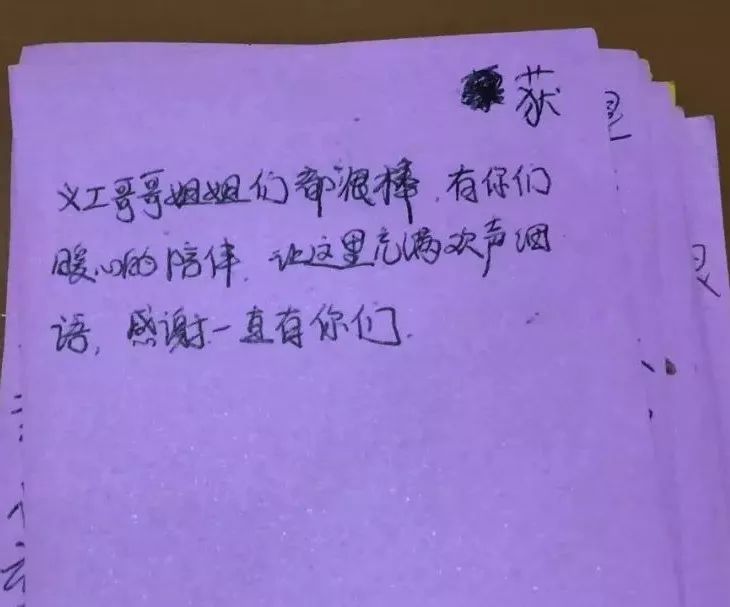 获
义工哥哥姐姐们都很棒,有你们
暖心的陪伴,让这里充满欢声细
语,感谢一直有你们.